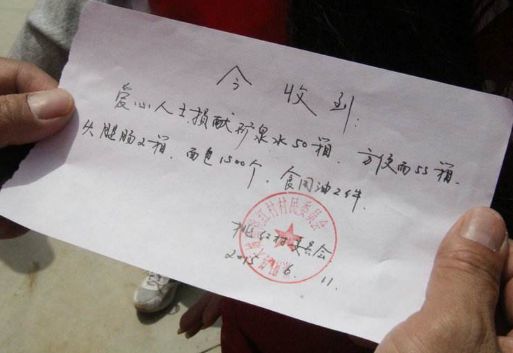 今收到:
爱心人士损献矿泉水50箱、方便面55箱、
火腿肠2箱、面包1500个、食用油2件.
红村村民委员会
红村委员会
2015.6.11.